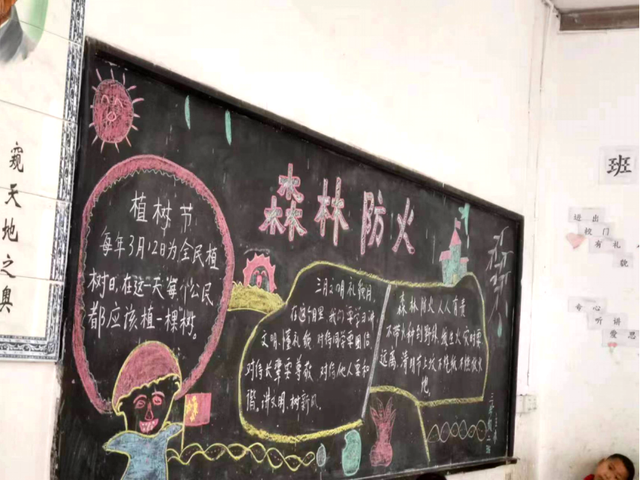 窥天地之奥
森林防火
植树节
每年3月12日为全民植
树日,在这一天每个公民
都应该植一棵树。
三月文明礼貌月,
在这个月里 我们要学会讲
文明,懂礼貌 对待同学要团结
对待长辈要尊敬 对待他人要和
谐,讲文明、树新风。
森林防火人人有责
不带火种到野外,发生火灾时要
远离,清明节上坟不烧纸不燃放火
地。
班
进出
校门
有礼
貌
专心
听讲
爱思